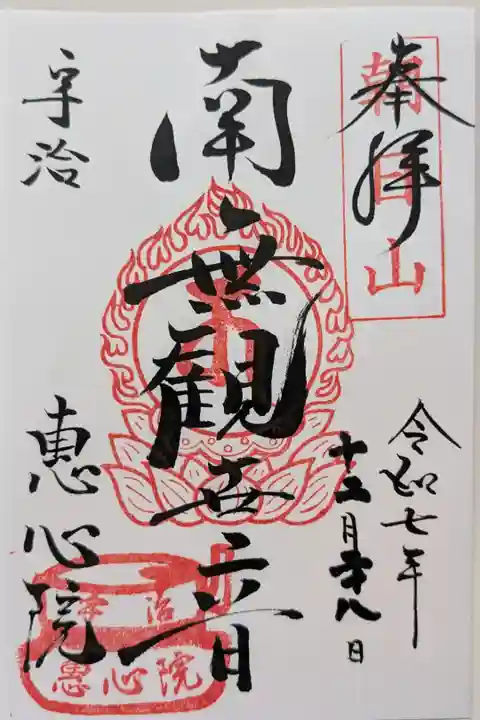 奉拝
朝日山
令和七年
十二月廿八日
南無觀世音
宇治
恵心院
宇治
恵心院